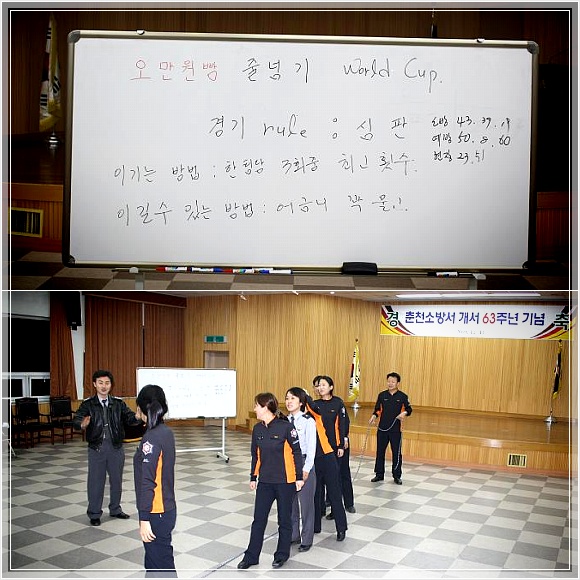 오만원빵 줄넘기 World Cup.
경기 rule : 심판
소방 43. 39. 19
예방 50. 8. 60
현장 23. 51
이기는 방법 : 한팀당 3회중 최고 횟수.
이길수 있는 방법 : 어금니 꽉 물고!.
경 춘천소방서 개서 63주년 기념 축